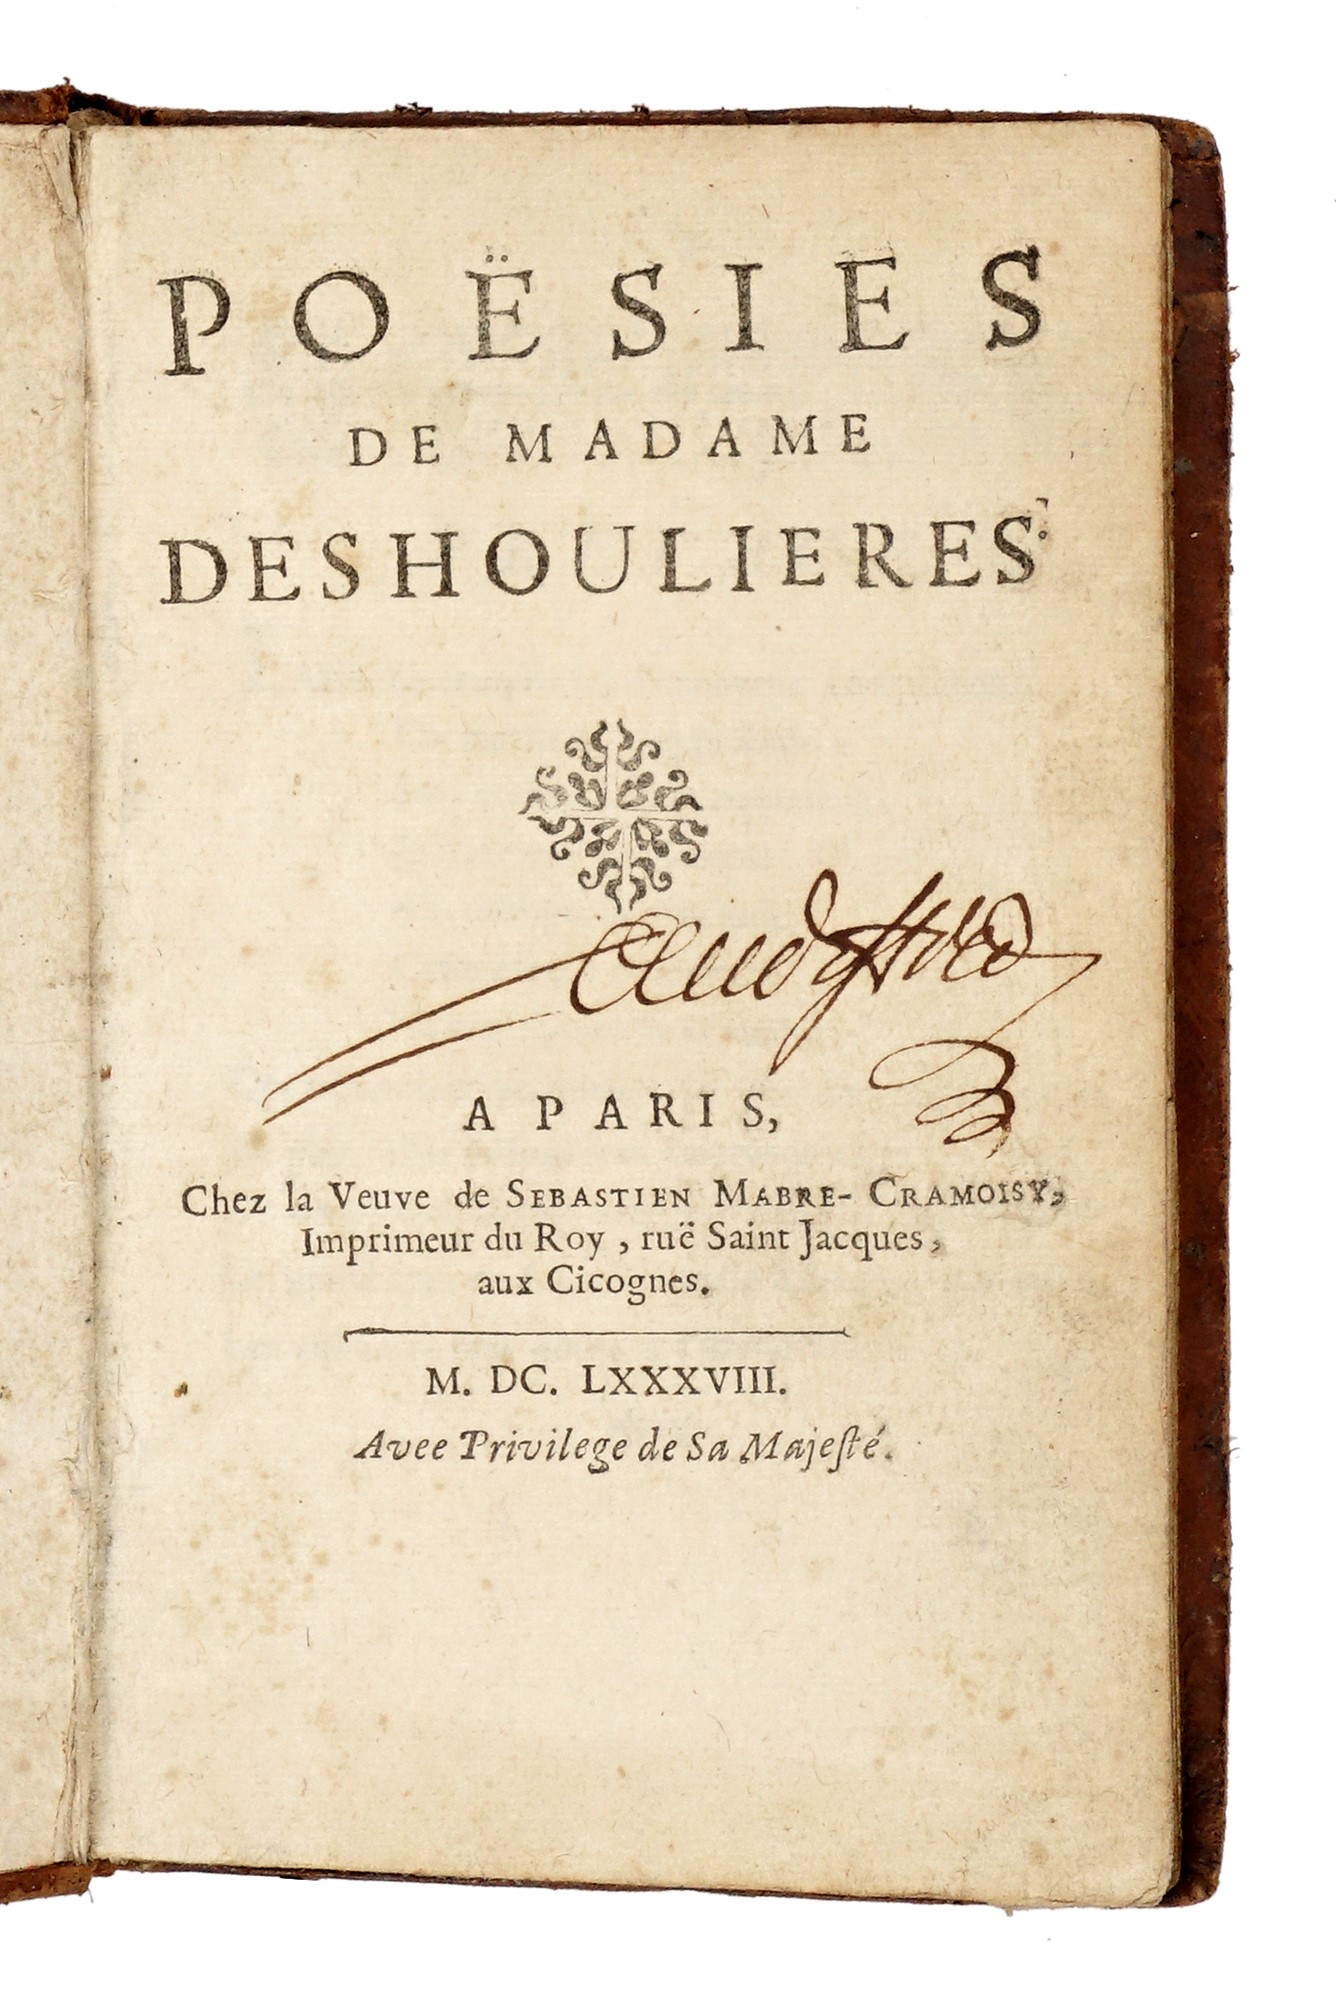 POËSIES
DE MADAME
DESHOULIERES.
A PARIS,
Chez la Veuve de SEBASTIEN MABRE-CRAMOISY,
Imprimeur du Roy, ruë Saint Jacques,
aux Cicognes.
M. DC. LXXXVIII.
Avec Privilege de Sa Majesté.